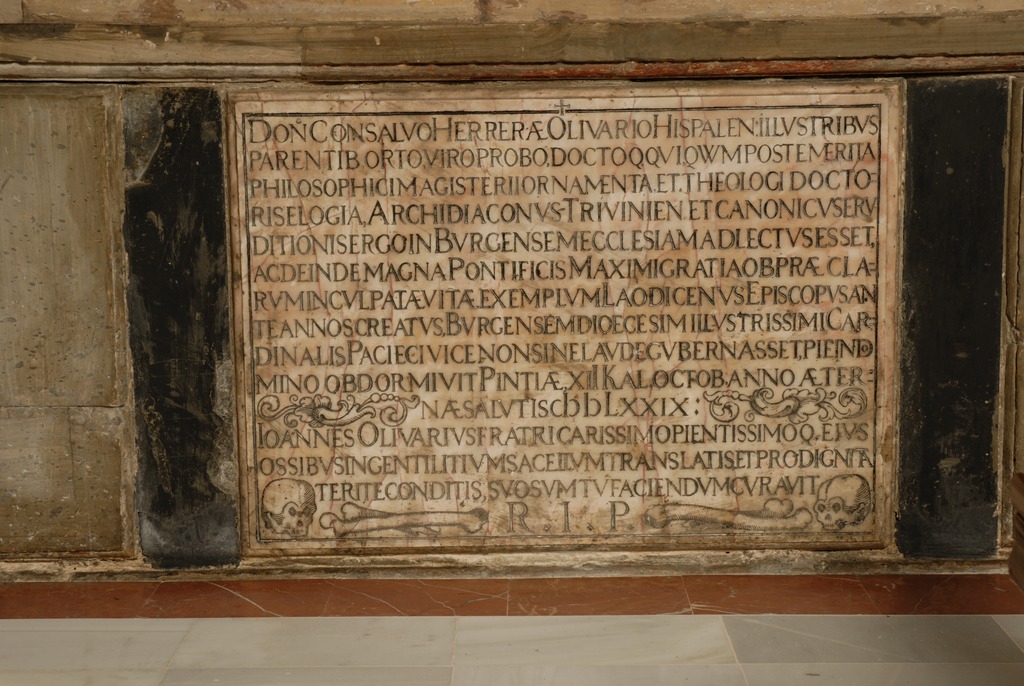 DOÑ CONSALVO HERRERÆ OLIVARIO HISPALEN: ILLVSTRIBVS
PARENTIB. ORTO VIRO PROBO, DOCTOQ. QVI QWM POST EMERITA
PHILOSOPHICI MAGISTERII ORNAMENTA, ET THEOLOGI DOCTO-
RIS ELOGIA, ARCHIDIACONVS TRIVINIEN. ET CANONICVS ERV
DITIONIS ERGO IN BVRGENSEM ECCLESIAM ADLECTVS ESSET,
AC DEINDE MAGNA PONTIFICIS MAXIMI GRATIA OB PRÆCLA-
RVM INCVLPATÆ VITÆ EXEMPLVM LAODICENVS EPISCOPVS AN
TE ANNOS CREATVS, BVRGENSEM DIOECESIM ILLVSTRISSIMI CAR-
DINALIS PACIECI VICE NON SINE LAVDE GVBERNASSET, PIE IN DO
MINO OBDORMIVIT PINTIÆ, XII KAL. OCTOB. ANNO ÆTER-
NÆ SALVTIS CIƆ IƆ LXXIX:
IOANNES OLIVARIVS FRATRI CARISSIMO PIENTISSIMOQ. EJVS
OSSIBVS IN GENTILITIVM SACELLVM TRANSLATIS ET PRO DIGNITA
TE RITE CONDITIS, SVO SVMTV FACIENDVM CVRAVIT
R. I. P